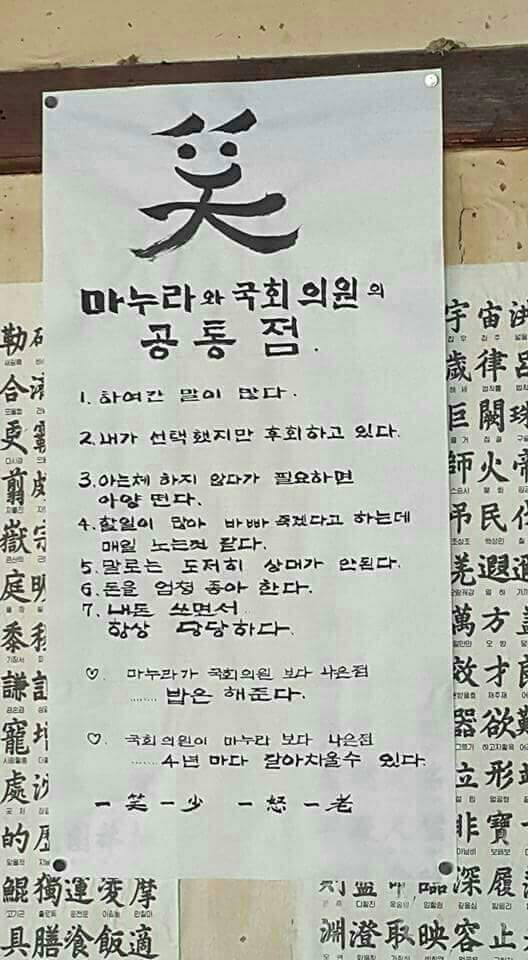 笑
마누라와 국회의원의
공통점.
1. 하여간 말이 많다.
2. 내가 선택했지만 후회하고 있다.
3. 아는체 하지 않다가 필요하면
아양 떤다.
4. 할일이 많아 바빠 죽겠다고 하는데
매일 노는것 같다.
5. 말로는 도저히 상대가 안된다.
6. 돈을 엄청 좋아 한다.
7. 내돈 쓰면서
항상 당당하다.
♡. 마누라가 국회의원 보다 나은점
........ 밥은 해준다.
♡. 국회의원이 마누라 보다 나은점
...... 4년 마다 갈아치울수 있다.
一笑一少 一怒一老
勒
合
更
翦
嶽宗
庭明
黍
謙
寵增
處沈
的歷
鯤獨運凌摩
具膳飡飯適
宇宙洪
歲律呂
巨闕珠
師火帝
弔民伐
羌遐邇
萬方蓋
效才良
器欲難
立形端
非寶
深履
淵澄取映容止